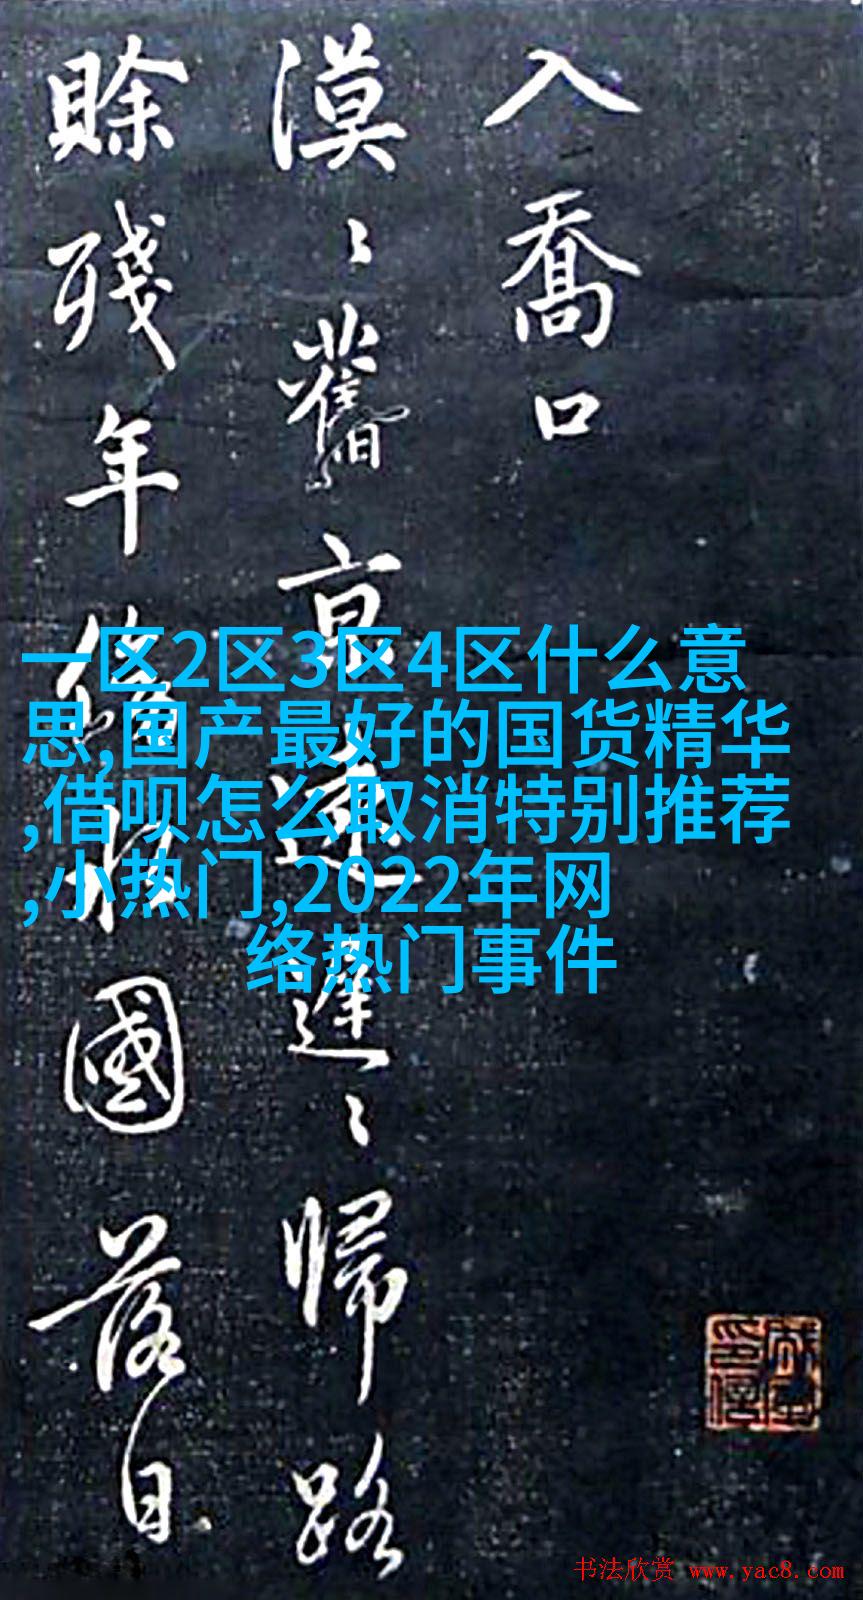 入喬口
漠〻舊京遠遲〻歸路
賒殘年傍水國落日
一区2区3区4区什么意
思,国产最好的国货精华
,借呗怎么取消特别推荐
,小热门,2022年网
络热门事件
书法欣赏 www.yac8.com